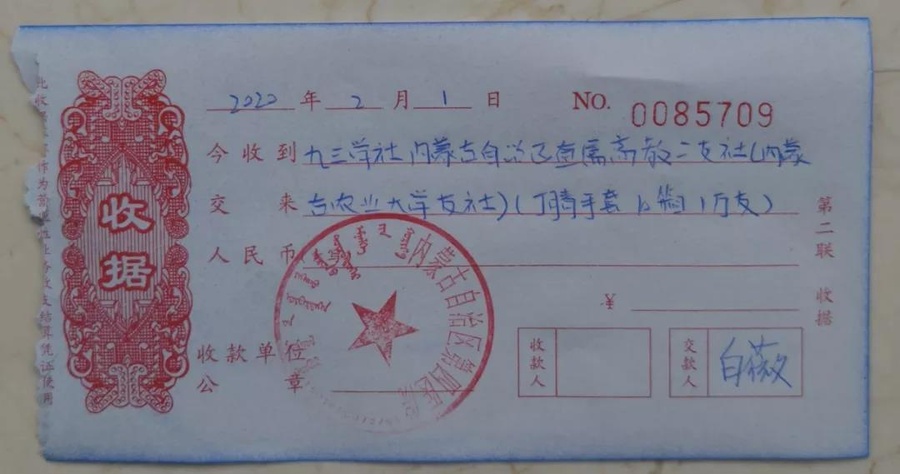 2020 年 2 月 1 日 NO. 0085709
今收到 九三学社内蒙古自治区直属高教二支社(内蒙
交 来 古农业大学支社)(丁腈手套 16箱 1万支)
人民币
¥
收款单位
公 章
收款人
交款人 白薇
收据
第二联 收据
内蒙古自治区第四医院